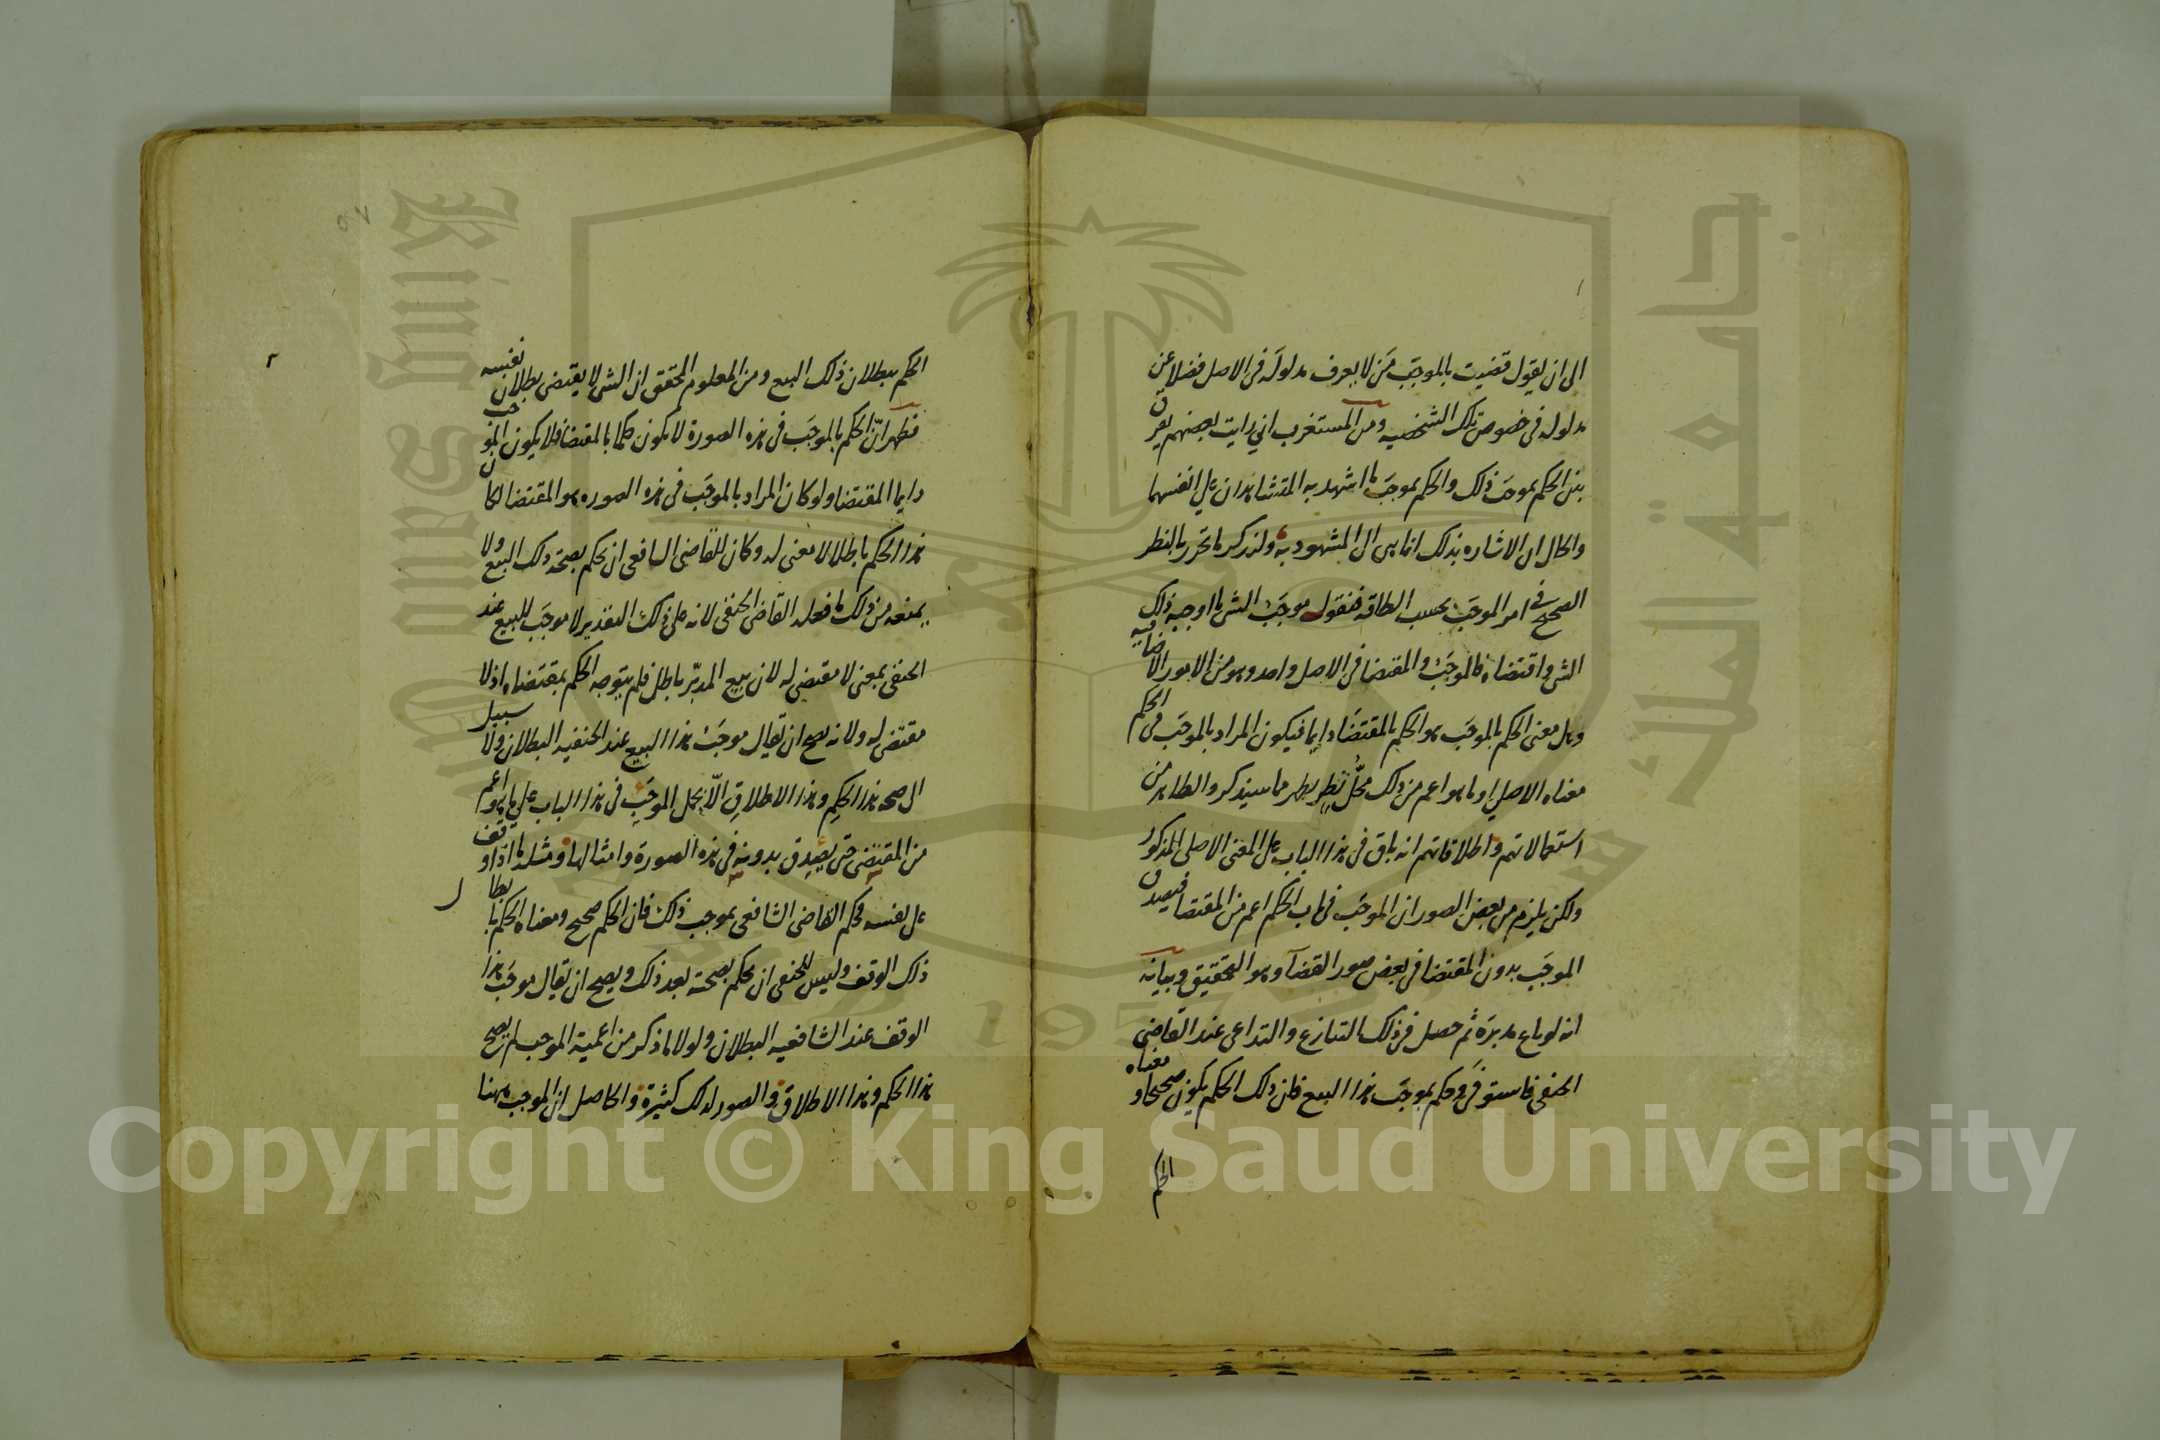 الى ان يقول قضيت بالموجَب مَن لا يعرف مدلولَه فى الاصل فضلا عن
مدلوله فى خصوص تلك الشخصيه ومن المستغرب انى رايت بعضهم يفرق
بين الحكم بموجَب ذلك والحكم بموجَب ما اشهد به المتشاهدان على انفسهما
والحال ان الاشاره بذلك انما هى الى المشهود به ولنذكر ما تحرر بالنظر
الصحيح فى امر الموجَب بحسب الطاقه فنقول موجَب الشى ما اوجبه ذلك
الشى واقتضاه فالموجَب والمقتضا فى الاصل واحد وهو من الامور الاضافيه
وهل معنى الحكم بالموجَب هو الحكم بالمقتضَا دايما فيكون المراد بالموجَب فى الحكم
معناه الاصلى او ما هو اعم من ذلك محلُّ نظرٍ يظهر مما سيذكر والظاهر من
استعمالاتهم واطلاقاتهم انه باق فى هذا الباب على المعنى الاصلى المذكور
ولكن يلزم من بعض الصور ان الموجَب فى باب الحكم اعم من المقتضا فيصدق
الموجَب بدون المقتضا فى بعض صور القضآ وهو التحقيق وبيانه
انه لو باع مدبرَه ثم حصل فى ذلك التنازع والتداعى عند القاضى
الحنفى فاستوفى وحكم بموجَب هذا البيع فان ذلك الحكم يكون صحيحا ومعناه
الحكم
٢
الحكم ببطلان ذلك البيع ومن المعلوم المحقق ان الشى لا يقتضى بطلان نفسه
فظهر انّ الحكم بالموجَب فى هذه الصورة لا يكون حكما بالمقتضا فلا يكون الموجب
دايما المقتضا ولو كان المراد بالموجَب فى هذه الصوره هو المقتضا لكان
هذا الحكم باطلا لا معنى له وكان للقاضى الشافعى ان يحكم بصحة ذلك البيع ولا
يمنعه من ذلك ما فعله القاضى الحنفى لانه على ذلك التقدير لا موجَب للبيع عند
الحنفى بمعنى لا مقتضى له لان بيع المدبّر باطل فلم يتوجه الحكم بمقتضاه اذ لا
مقتضى له ولانه يصح ان يقال موجَب هذا البيع عند الحنفيه البطلان ولا سبيل
الى صحة هذا الحكم وهذا الاطلاق الاّ بحمل الموجَب فى هذا الباب على ما هو اعم
من المقتضى حتى يصدق بدونه فى هذه الصورة وامثالها ومثله ما اذا وقف
على نفسه فحكم القاضى الشافعى بموجب ذلك فان الحكم صحيح ومعناه الحكم بابطال
ذلك الوقف وليس للحنفى ان يحكم بصحته بعد ذلك ويصح ان يقال موجَب هذا
الوقف عند الشافعيه البطلان ولولا ما ذكر من اعمية الموجب لم يصح
هذا الحكم وهذا الاطلاق والصور لذلك كثيرة والحاصل ان الموجب ههنا
جامعة الملك سعود
King Saud University
195
Copyright © King Saud University